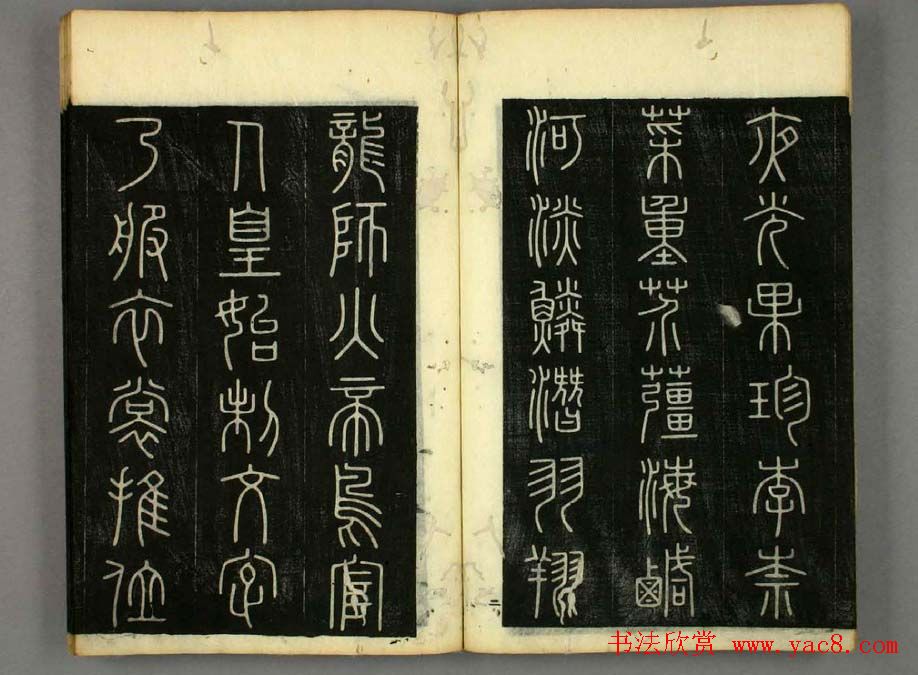 夜光果珍李柰
菜重芥薑海鹹
河淡鱗潛羽翔
龍師火帝鳥官
人皇始制文字
乃服衣裳推位
书法欣赏 www.yac8.com